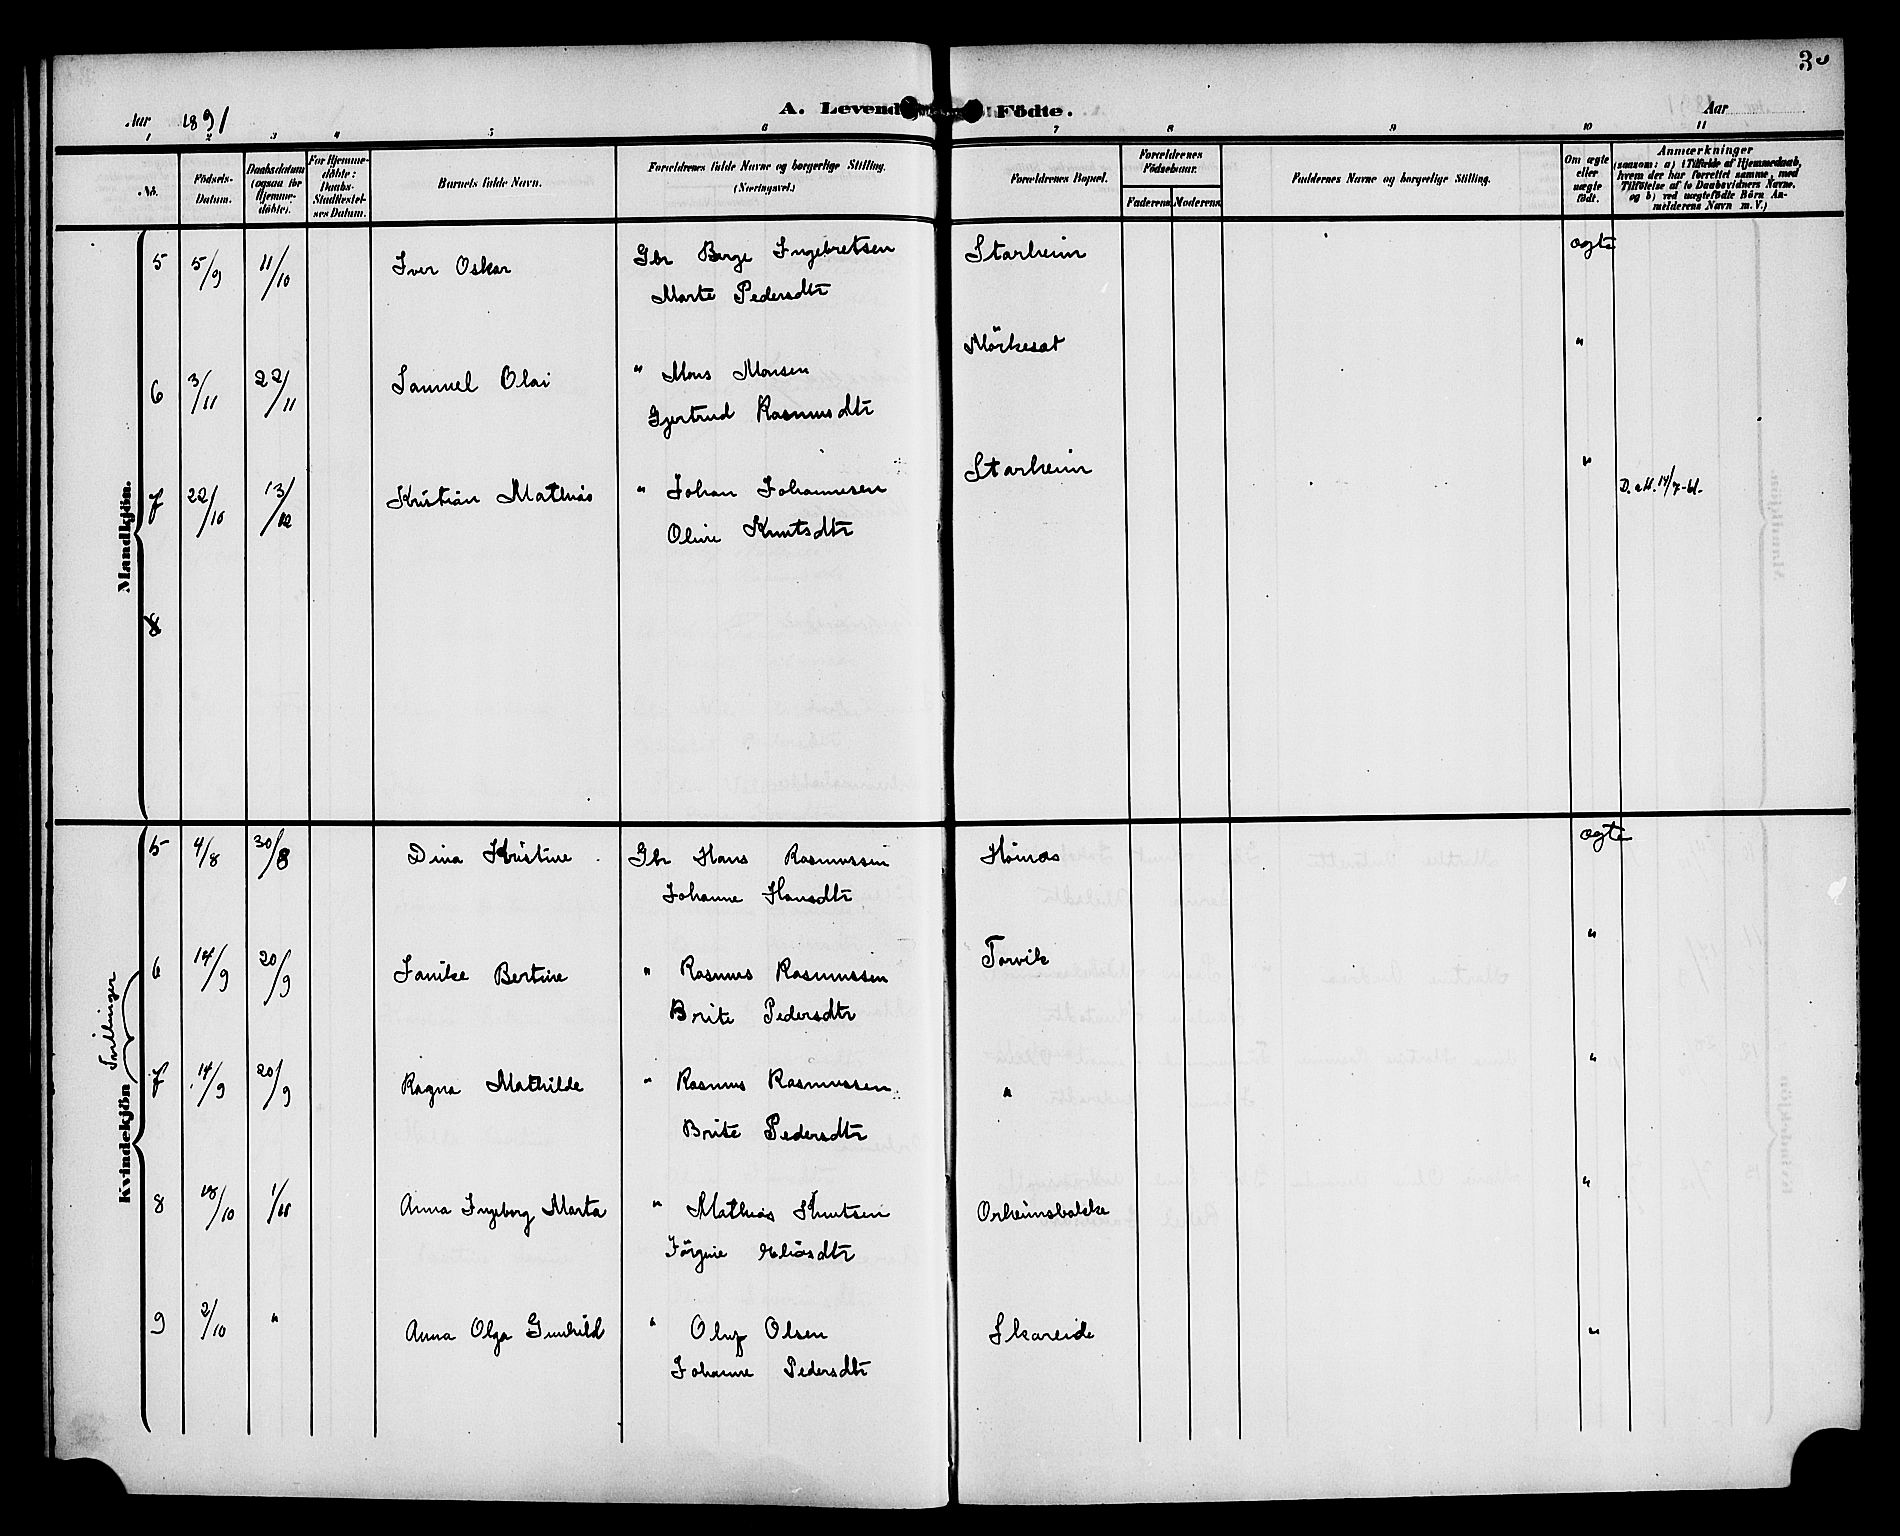 30
A. Levende Födte.
Aar 1891
Aar
1 2 3 4 5 6 7 8 9 10 11
No.
Födsels-Datum.
Daabsdatum (ogsaa for Hjemmedöbte).
For Hjemmedöbte: Daabs-Stadfæstelses Datum.
Barnets fulde Navn.
Forældrenes fulde Navne og borgerlige Stilling. (Næringsvei.)
Forældrenes Bopæl.
Forældrenes Födselsaar.
Faderens Moderens
Faddernes Navne og borgerlige Stilling.
Om ægte eller uægte födt.
Anmærkninger
(saasom: a) i Tilfælde af Hjemmedaab,
hvem der har forrettet samme, med
Tilföielse af to Daabsvidners Navne,
og b) ved uægtefödte Börn An-
melderens Navn m. V.)
Mandkjön.
5 5/9 11/10 Iver Oskar Gbr Berge Ingebretsen Starheim ægte
Marte Pedersdtr
6 3/11 22/11 Samuel Olai " Mons Monsen Mörkesat "
Gjertrud Rasmusdtr
7 22/10 13/12 Kristian Mathias " Johan Johannesen Starheim " D. att. 14/7-61.
Oline Knutsdtr
8
Kvindekjön
Tvillinger
5 4/8 30/8 Dina Kristine Gbr Hans Rasmussen Hönnos ægte
Johanne Hansdtr
6 14/9 20/9 Janike Bertine " Rasmus Rasmussen Torvik "
Brite Pedersdtr
7 14/9 20/9 Ragna Mathilde " Rasmus Rasmussen " "
Brite Pedersdtr
8 18/10 1/11 Anna Ingeborg Marta " Mathias Knutsen Orheimsbakke "
Jörgine Eliasdtr
9 2/10 " Anna Olga Gunhild " Oluf Olsen Skareide "
Johanne Pedersdtr